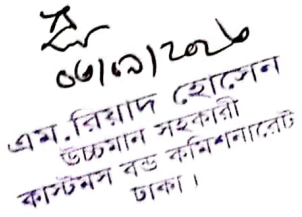 ০৬/০৯/২০২০
এম. রিয়াদ হোসেন
উচ্চমান সহকারী
কাস্টমস বন্ড কমিশনারেট
ঢাকা।